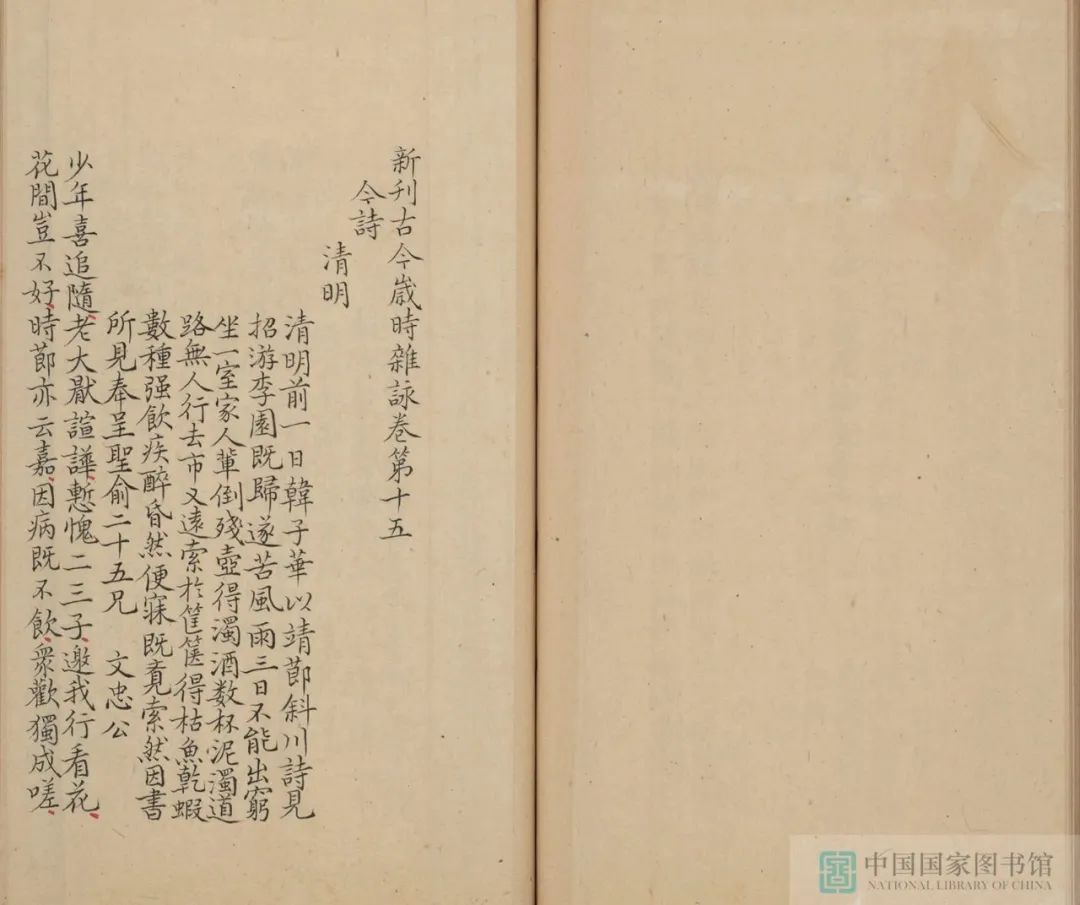 新刋古今歲時雜詠卷第十五
今詩
清明
清明前一日韓子華以靖節斜川詩見
招游李園既歸遂苦風雨三日不能出窮
坐一室家人輩倒殘壺得濁酒数杯泥濁道
路無人行去市又遠索扵筐篋得枯魚乾蝦
數種强飲疾醉昏然便寐既覔索然因書
所見奉呈聖俞二十五兄 文忠公
少年喜追隨老大厭諠譁慙愧二三子邀我行看花
花間豈不好時節亦云嘉因病既不飲衆歡獨成嗟
中国国家图书馆
NATIONAL LIBRARY OF CHINA